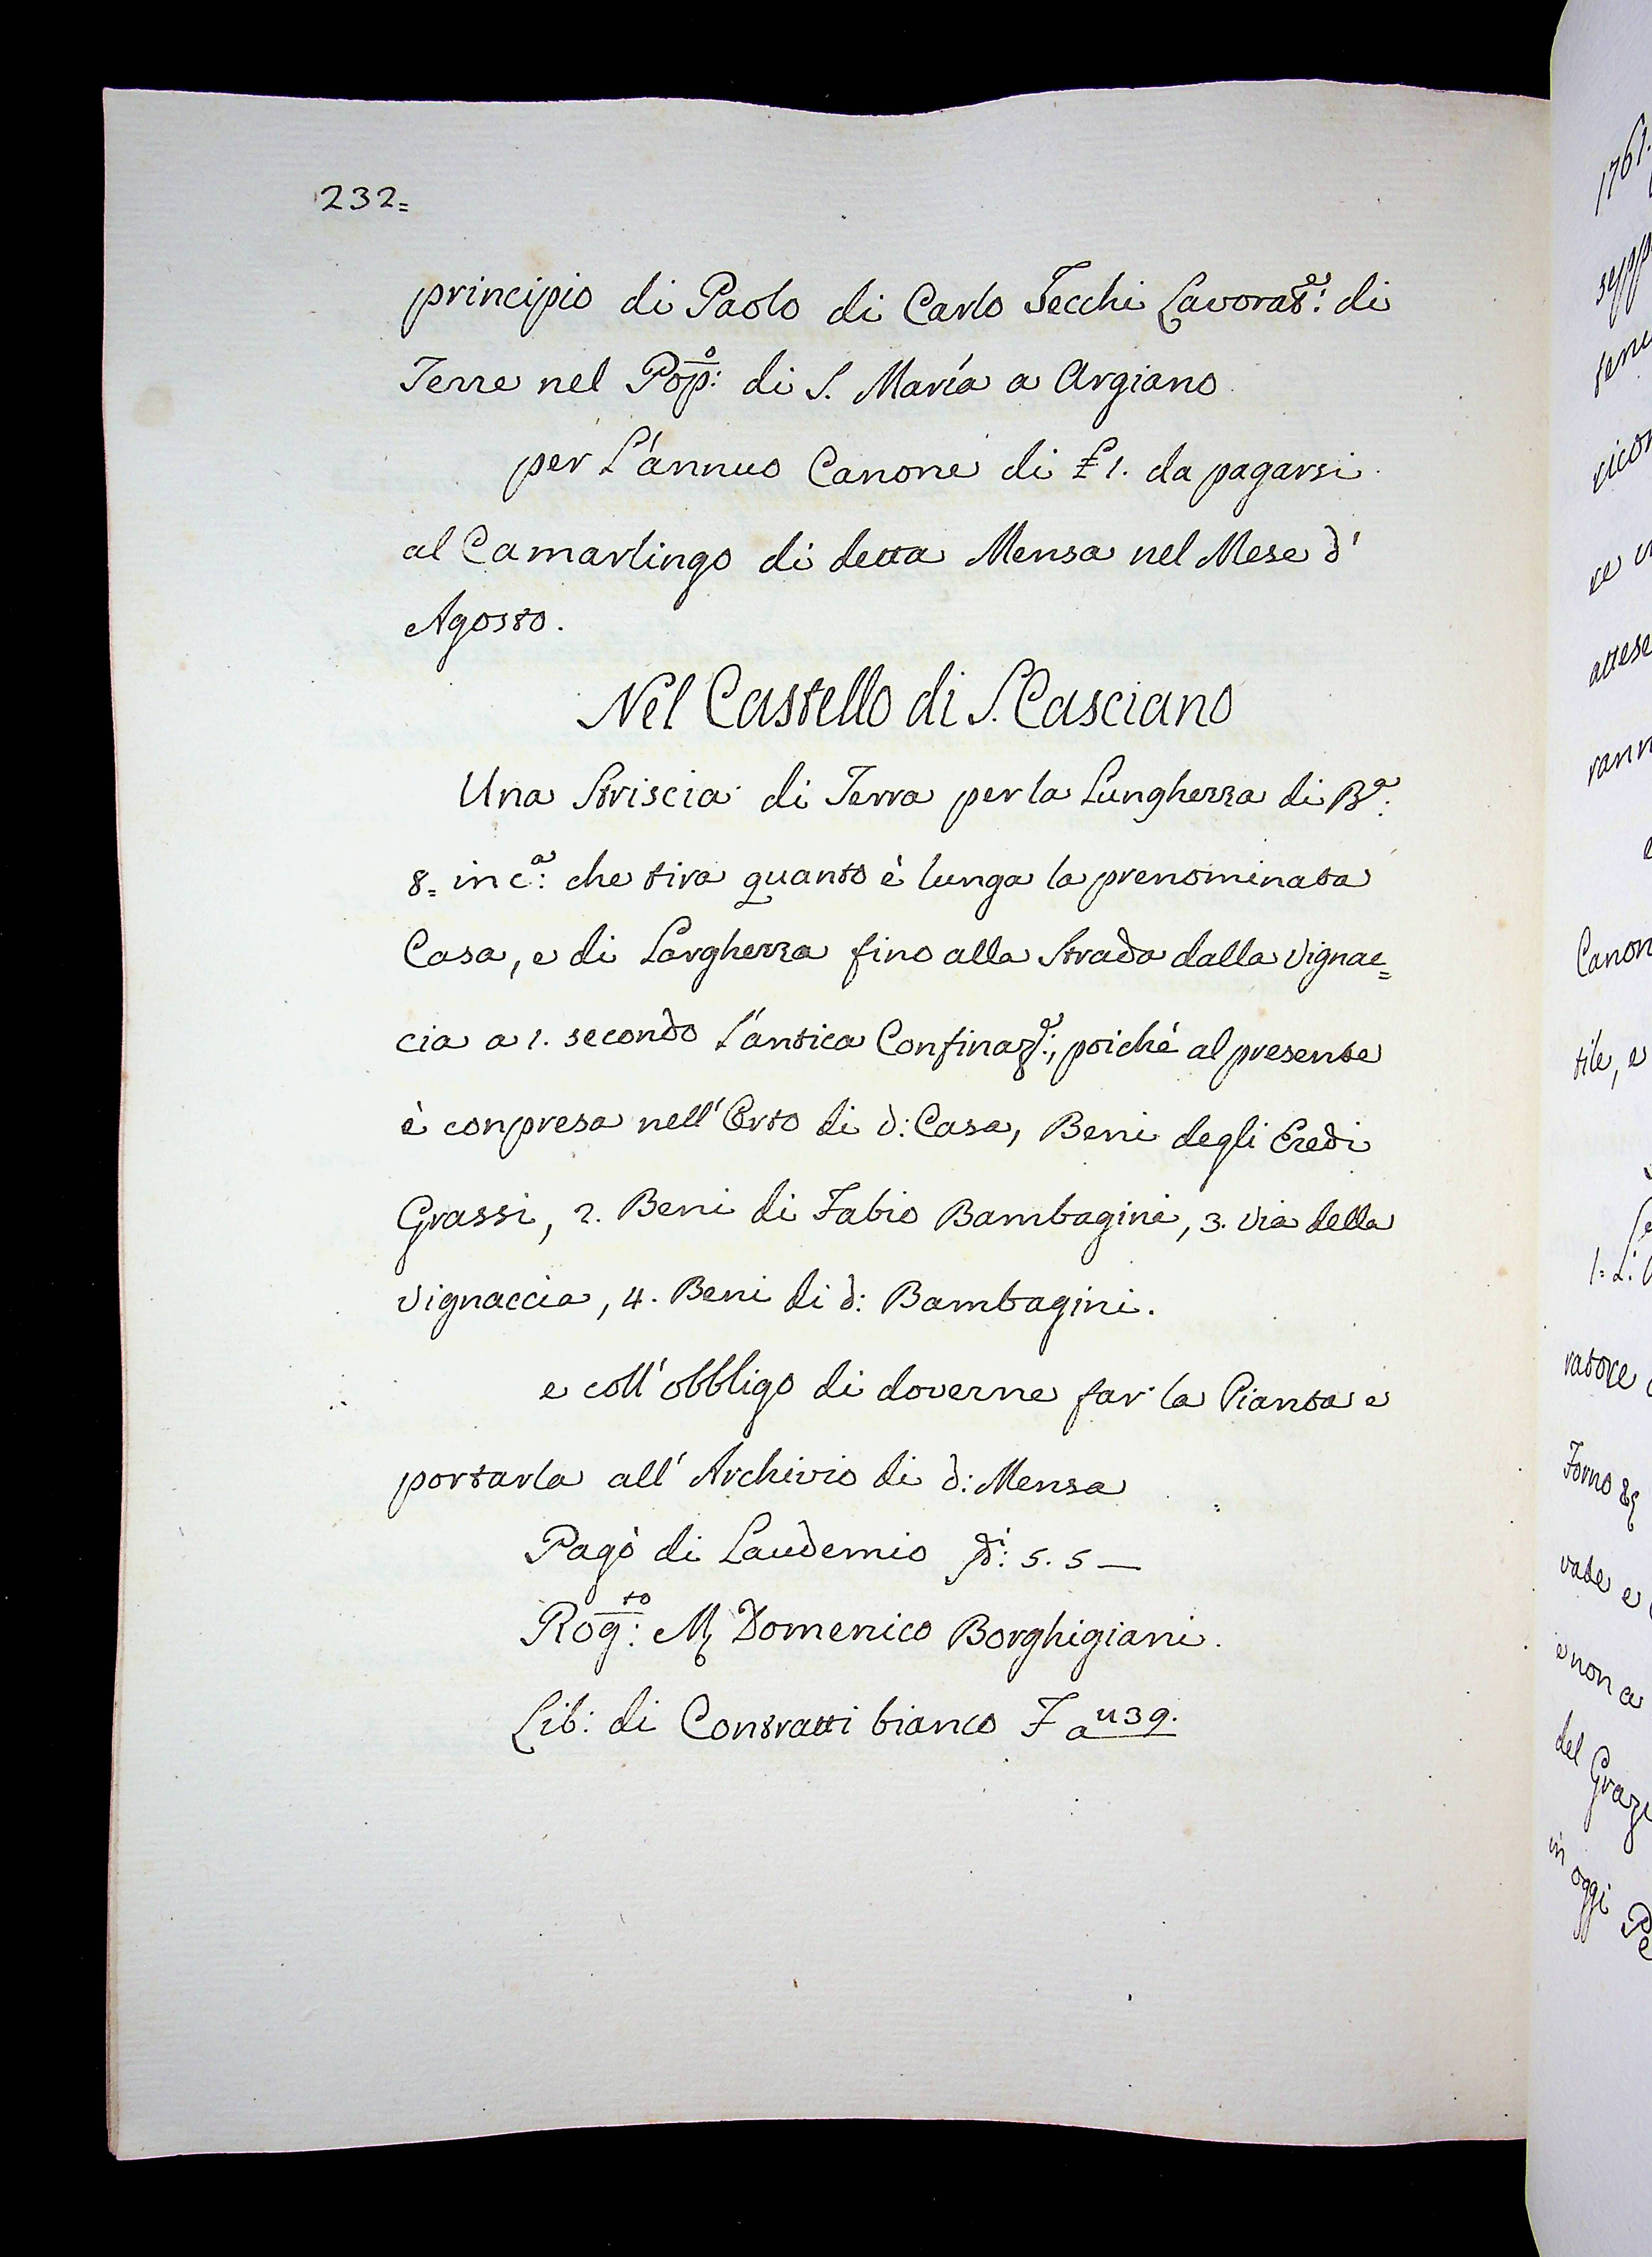 232=
principio di Paolo di Carlo Tecchi Lavorat.e: di
Terre nel Pop.o: di S. Maria a Argiano
per L'annuo Canone di £ 1. da pagarsi
al Camarlingo di detta Mensa nel Mese d'
Agosto.
Nel Castello di S. Casciano
Una Striscia di Terra per la Lunghezza di B.a:
8= in c.a: che tira quanto è lunga la prenominata
Casa, e di Larghezza fino alla Strada dalla Vignac=
cia a 1. secondo l'antica Confinaz.e:, poiché al presente
è conpresa nell'Orto di d: Casa, Beni degli Eredi
Grassi, 2. Beni di Fabio Bambagini, 3. Via della
Vignaccia, 4. Beni di d: Bambagini.
e coll'obbligo di doverne far la Pianta e
portarla all'Archivio di d: Mensa
Pagò di Laudemio di: 5. 5 —
Rog.to: M. Domenico Borghigiani.
Lib: di Contratti bianco F a 439.
1761.
attese
Canon
tile, e
ratore
Forno
e non a
del Grazi
in oggi